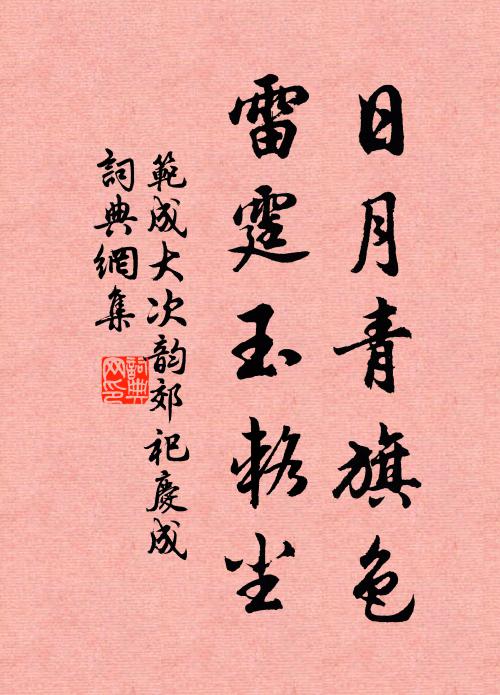 日月青旗色
雷霆玉輅尘
範成大次韵郊祀慶成
詞典網集
詞典网印